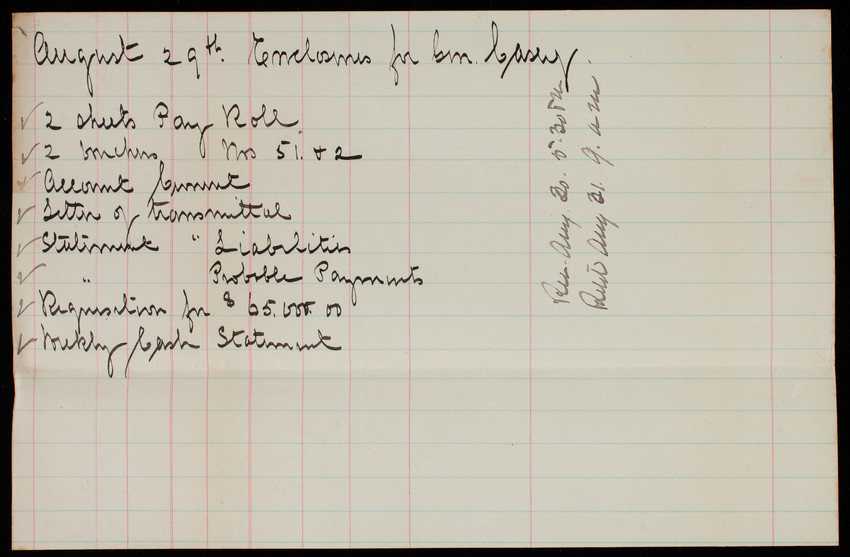 August 29th. Enclosures for Gen. Casey.
2 sheets Pay Roll.
2 vouchers Nos 51. + 2
Account Current
Letter of transmittal
Statement " Liabilities
" Probable Payments
Requisition for $65.000.00
Weekly Cash Statement
Aug 20. 5.30 P.M.
Aug 21. 9. a m